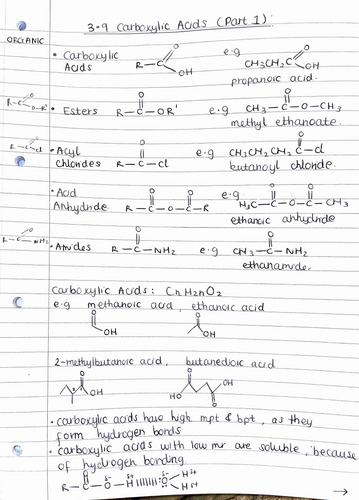 3.9 Carboxylic Acids (Part 1)
ORGANIC
• Carboxylic Acids R—C O OH e.g CH3CH2C O OH
propanoic acid.
R—C O O—R'
• Esters R—C O —OR' e.g CH3—C O —O—CH3
methyl ethanoate.
R—C O Cl
• Acyl chlorides R—C O —Cl e.g CH3CH2CH2C O —Cl
butanoyl chloride.
• Acid Anhydride R—C O —O—C O —R e.g H3C—C O —O—C O —CH3
ethanoic anhydride
R—C O NH2
• Amides R—C O —NH2 e.g CH3—C O —NH2
ethanamide.
Carboxylic Acids: CnH2nO2
e.g methanoic acid, ethanoic acid
O OH O OH
2-methylbutanoic acid, butanedioic acid
O OH O OH HO O
• carboxylic acids have high mpt & bpt, as they
form hydrogen bonds
• carboxylic acids with low mr are soluble, because
of hydrogen bonding
R—C O —O δ- —H δ+ O δ- H δ+ H δ+
→